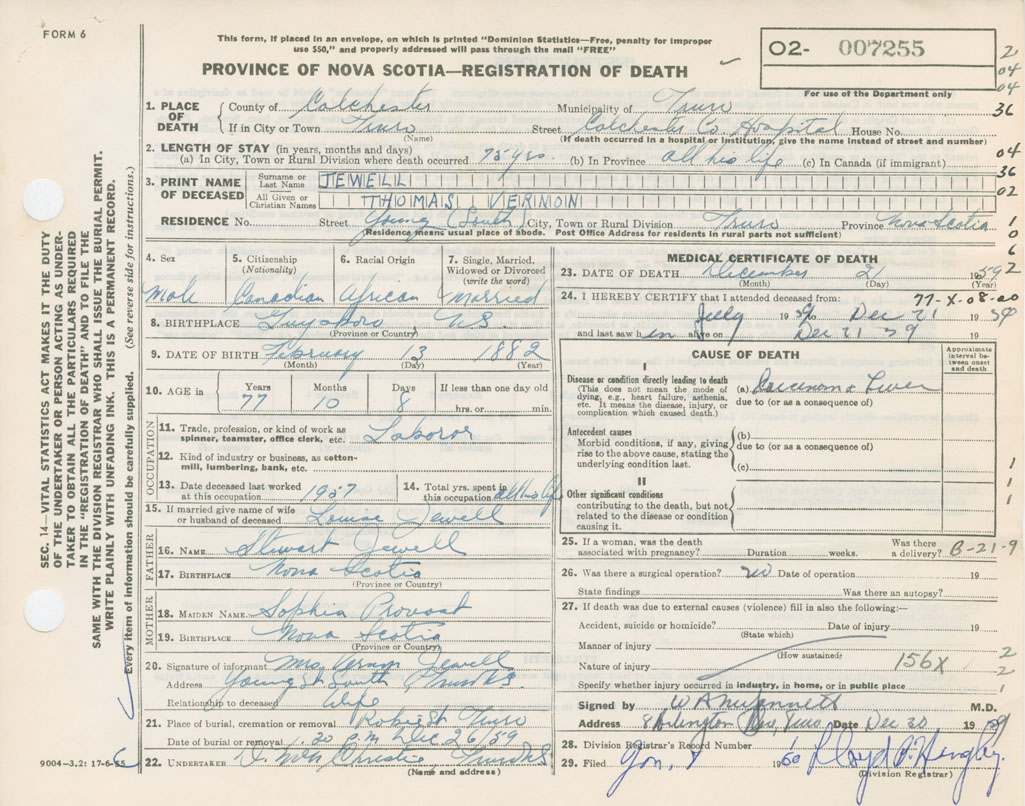 FORM 6
This form, if placed in an envelope, on which is printed "Dominion Statistics—Free, penalty for improper
use $50," and properly addressed will pass through the mail "FREE"
PROVINCE OF NOVA SCOTIA—REGISTRATION OF DEATH
O2- 007255
For use of the Department only
2
04
04
36
04
36
02
1
0
6
2
SEC. 14—VITAL STATISTICS ACT MAKES IT THE DUTY
OF THE UNDERTAKER OR PERSON ACTING AS UNDER-
TAKER TO OBTAIN ALL THE PARTICULARS REQUIRED
IN THE "REGISTRATION OF DEATH" AND TO FILE THE
SAME WITH THE DIVISION REGISTRAR WHO SHALL ISSUE THE BURIAL PERMIT.
WRITE PLAINLY WITH UNFADING INK. THIS IS A PERMANENT RECORD.
Every item of information should be carefully supplied. (See reverse side for instructions.)
1. PLACE OF DEATH County of Colchester Municipality of Truro
If in City or Town Truro Street Colchester Co. Hospital House No.
(Name) (If death occurred in a hospital or institution, give the name instead of street and number)
2. LENGTH OF STAY (in years, months and days)
(a) In City, Town or Rural Division where death occurred 75 yrs. (b) In Province all his life (c) In Canada (if immigrant)
3. PRINT NAME OF DECEASED Surname or Last Name JEWELL
All Given or Christian Names THOMAS VERNON
RESIDENCE No. Street Young (South) City, Town or Rural Division Truro Province Nova Scotia
(Residence means usual place of abode. Post Office Address for residents in rural parts not sufficient)
4. Sex 5. Citizenship (Nationality) 6. Racial Origin 7. Single, Married, Widowed or Divorced (write the word)
Male Canadian African Married
8. BIRTHPLACE Guysboro N.S.
(Province or Country)
9. DATE OF BIRTH February 13 1882
(Month) (Day) (Year)
10. AGE in Years Months Days If less than one day old
77 10 8 hrs. or min.
OCCUPATION
11. Trade, profession, or kind of work as spinner, teamster, office clerk, etc. Laboror
12. Kind of industry or business, as cotton-mill, lumbering, bank, etc.
13. Date deceased last worked at this occupation 1957 14. Total yrs. spent in this occupation all his life
15. If married give name of wife or husband of deceased Louise Jewell
FATHER
16. NAME Stewart Jewell
17. BIRTHPLACE Nova Scotia
(Province or Country)
MOTHER
18. MAIDEN NAME Sophia Provost
19. BIRTHPLACE Nova Scotia
(Province or Country)
20. Signature of informant Mrs. Vernon Jewell
Address Young St South, Truro N.S.
Relationship to deceased Wife
21. Place of burial, cremation or removal Robie St Truro
Date of burial or removal 1.30 P.M. Dec 26/59
22. UNDERTAKER Christie, Truro N.S.
(Name and address)
9004-3.2: 17-6-55
MEDICAL CERTIFICATE OF DEATH
23. DATE OF DEATH December 21 1959
(Month) (Day) (Year)
24. I HEREBY CERTIFY that I attended deceased from: 77-X-08-00
July 1959 to Dec 21 1959
and last saw him alive on Dec 21 59 19
CAUSE OF DEATH
Approximate interval between onset and death
I
Disease or condition directly leading to death
(This does not mean the mode of dying, e.g., heart failure, asthenia, etc. It means the disease, injury, or complication which caused death.)
(a) Carcinoma Liver
due to (or as a consequence of)
Antecedent causes
Morbid conditions, if any, giving rise to the above cause, stating the underlying condition last.
(b)
due to (or as a consequence of)
(c)
II
Other significant conditions
contributing to the death, but not related to the disease or condition causing it.
1
1
1
25. If a woman, was the death associated with pregnancy? Duration weeks. Was there a delivery? B-21-9
26. Was there a surgical operation? no Date of operation 19
State findings Was there an autopsy?
27. If death was due to external causes (violence) fill in also the following:—
Accident, suicide or homicide? Date of injury 19
(State which)
Manner of injury 2
(How sustained)
Nature of injury 156X 2
Specify whether injury occurred in industry, in home, or in public place 1
Signed by M.D.
Address 8 Arlington Truro Date Dec 30 1959
28. Division Registrar's Record Number
29. Filed Jan. 1960 Lloyd
(Division Registrar)